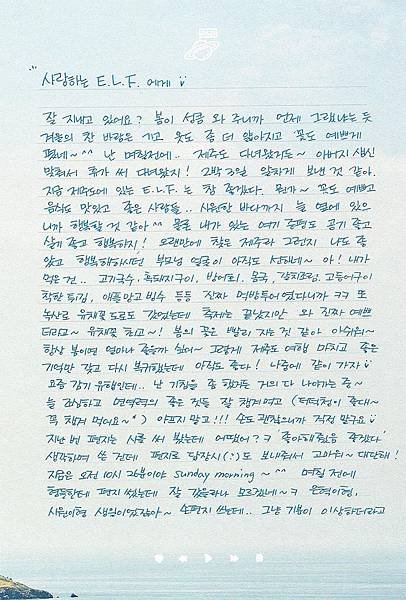 사랑하는 E.L.F. 에게
잘 지내고 있어요? 봄이 성큼 와 주니까 언제 그랬냐는 듯
겨울의 찬 바람은 가고 옷도 좀 더 얇아지고 꽃도 예쁘게
폈네~^^ 난 며칠전에.. 제주도 다녀왔거든~ 아버지 생신
맞춰서 휴가 써 다녀왔지! 2박 3일 알차게 보낸 것 같아.
지금 제주도에 있는 E.L.F.는 참 좋겠다. 뭔가~ 꽃도 예쁘고
음식도 맛있고 좋은 사람들.. 시원한 바다까지 늘 옆에 있으
니까 행복할 것 같아^^ 물론 내가 있는 여기 증평도 공기 좋고
살기 좋고 행복하지! 오랜만에 찾은 제주라 그런지 나도 좋
았고 행복해하시던 부모님 얼굴이 아직도 선하네~ 아! 내가
먹은 건.. 고기국수, 흑돼지구이, 방어회, 몸국, 갈치조림, 고등어구이
착한 튀김, 애플망고 빙수 등등 진짜 먹방투어였다니까 ㅋㅋ 또
녹산로 유채꽃 도로도 갔었는데 축제는 끝났지만 와 진짜 예쁘
더라고~ 유채꽃 최고~! 봄의 꽃은 빨리 지는 것 같아 아쉬워~
항상 봄이면 얼마나 좋을까 싶어~ 그렇게 제주도 여행 마치고 좋은
기억만 갖고 다시 복귀했는데 아직도 좋다! 나중에 같이 가자
요즘 감기 유행인데.. 난 기침을 좀 했거든 거의 다 나아가는 중~
늘 건강하고 면역력에 좋은 것들 잘 챙겨먹고 (더덕청이 좋대~
꼭 챙겨 먹어요~*) 아프지 말고!!! 손도 괜찮으니까 걱정 말구요
지난 번 편지는 시를 써 봤는데 어땠어?ㅋ '좋아해줬음 좋겠다'
생각하며 쓴 건데 편지로 답장시(?)도 보내줘서 고마워~ 대단해!
지금은 오전 10시 26분이야 Sunday morning~^^ 며칠 전에
형들한테 편지 썼는데 잘 갔을라나 모르겠네~ㅋ 은혁이형,
시원이형 생일이었잖아~ 손편지 쓰는데.. 그냥 기분이 이상하더라고